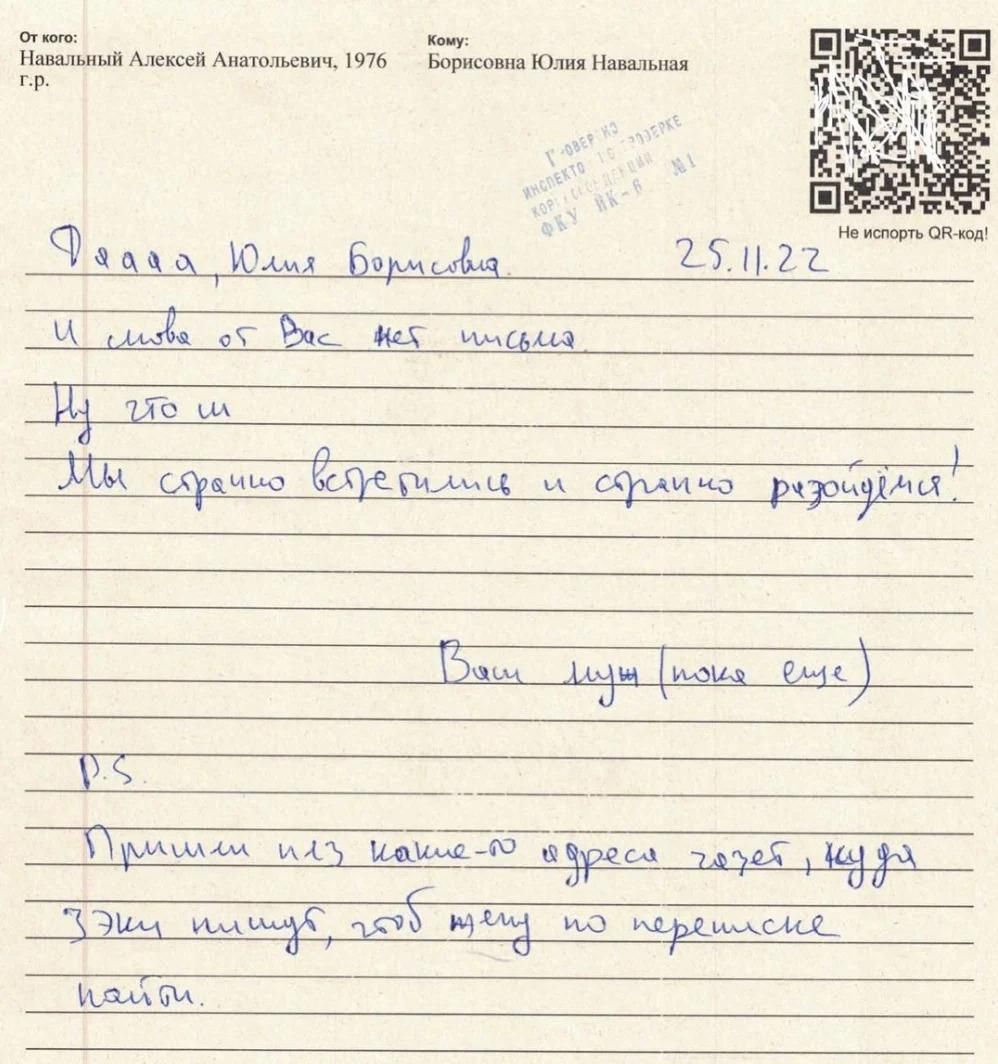 От кого:
Навальный Алексей Анатольевич, 1976
г.р.
Кому:
Борисовна Юлия Навальная
ИНСПЕКТО
ФКУ ИК-6 №1
Не испорть QR-код!
Дяааа, Юлия Борисовна. 25.11.22
И снова от Вас нет письма.
Ну что ш
Мы странно встретились и странно разойдёмся!
Ваш муж (пока еще)
P.S.
Пришли плз какие-то адреса газет, куда
зэки пишут, чтоб жену по переписке
найти.